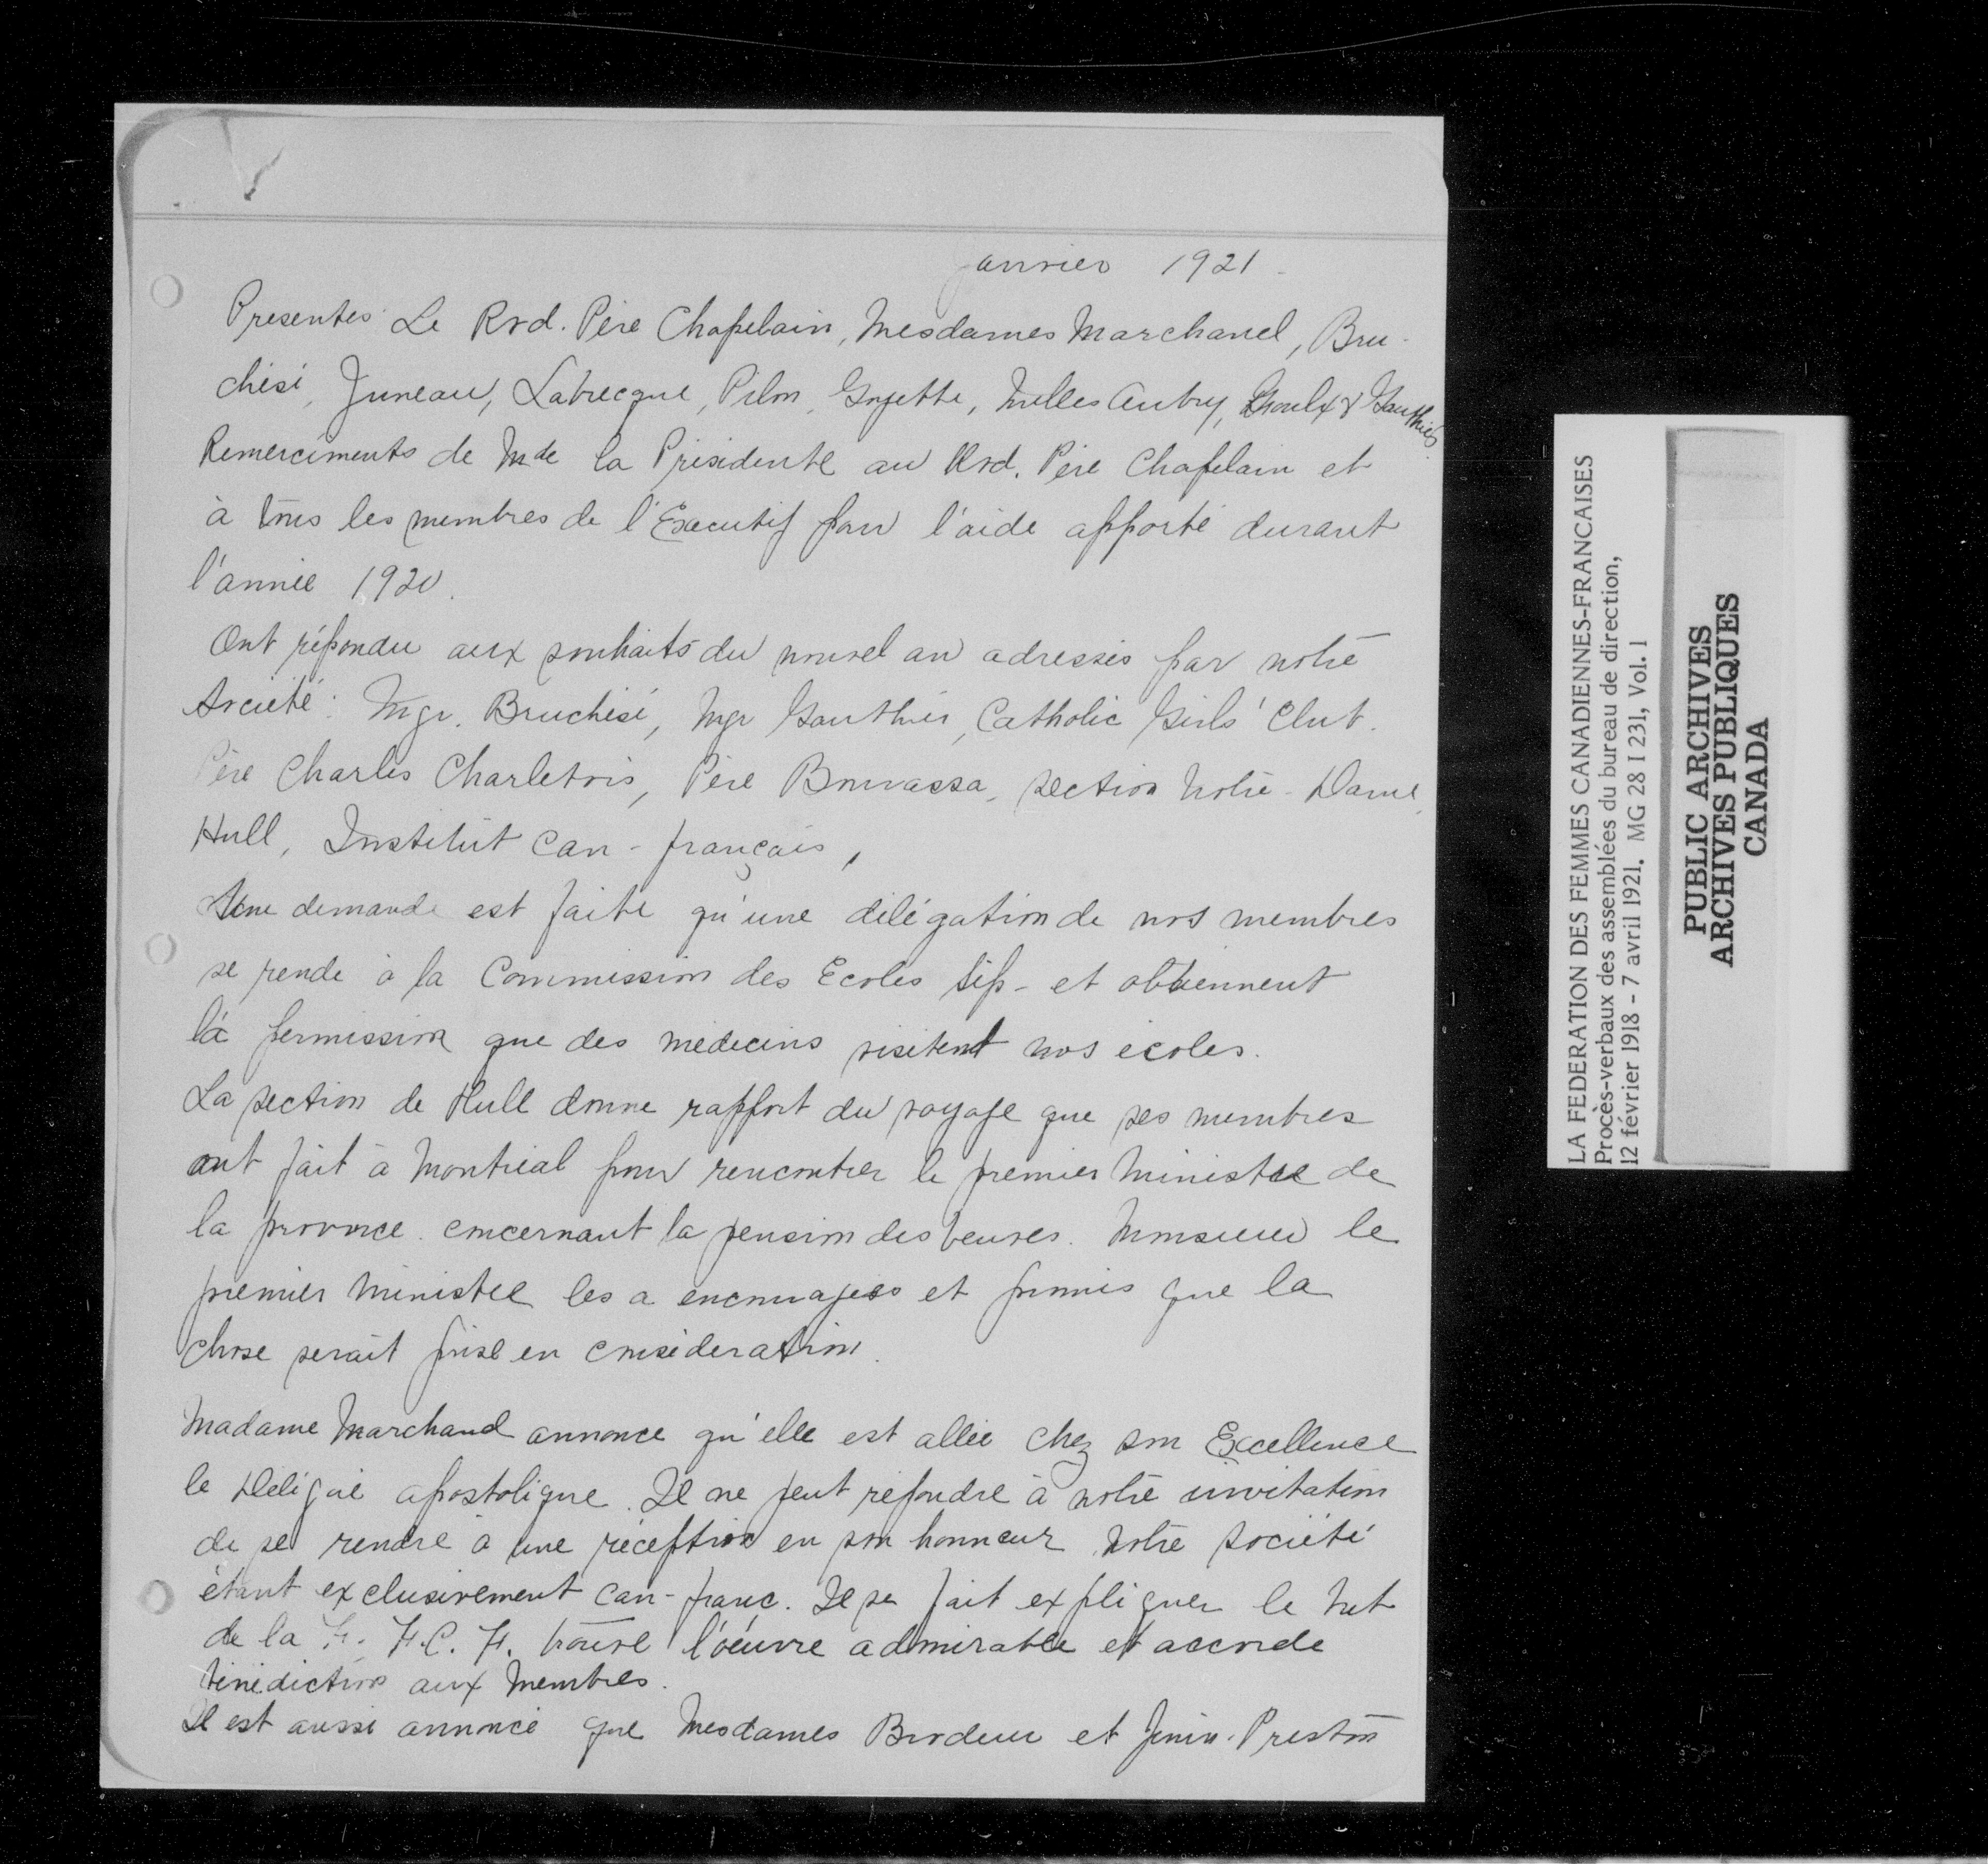 janvier 1921.
Presentes: Le Rvd. Père Chapelain, Mesdames Marchand, Bru-
chési, Juneau, Labrecque, Pilon, Goyette, Melles Aubry, & Gauthier
Remerciments de Mde la Présidente au Rvd. Père Chapelain et
à tous les membres de l'Executif pour l'aide apporté durant
l'année 1920.
Ont répondu aux souhaits du nouvel an adressés par notre
Société: Mgr. Bruchési, Mgr Gauthier, Catholic Girls' Club.
Père Charles Charlebois, Père Bourassa, section Notre-Dame,
Hull, Institut Can-français,
Une demande est faite qu'une délégation de nos membres
se rende à la Commission des Ecoles Sép- et obtiennent
la permission que des médecins visitent nos écoles.
La section de Hull donne rapport du voyage que ses membres
ont fait à Montréal pour rencontrer le premier Ministre de
la province concernant la pension des veuves. Monsieur le
premier Ministre les a encouragées et promis que la
chose serait prise en considération.
Madame Marchand annonce qu'elle est allée chez son Excellence
le Délégué apostolique. Il ne peut répondre à notre invitation
de se rendre à une réception en son honneur notre société
étant exclusivement can-franc. Il se fait expliquer le but
de la F. F.C.F. trouve l'oeuvre admirable et accorde
bénédiction aux Membres.
Il est aussi annoncé que Mesdames Brodeur et Preston
LA FEDERATION DES FEMMES CANADIENNES-FRANCAISES
Procès-verbaux des assemblées du bureau de direction,
12 février 1918 - 7 avril 1921. MG 28 I 231, Vol. 1
PUBLIC ARCHIVES
ARCHIVES PUBLIQUES
CANADA